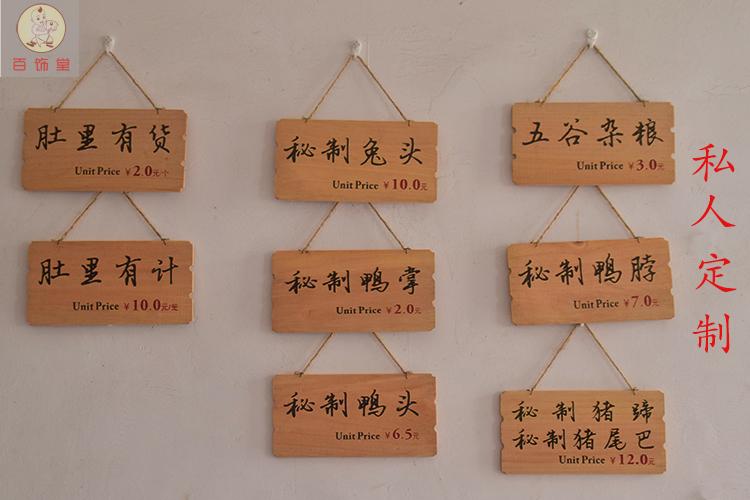 百饰堂
肚里有货
Unit Price ¥2.0元/个
肚里有计
Unit Price ¥10.0元/笼
秘制兔头
Unit Price ¥10.0元
秘制鸭掌
Unit Price ¥2.0元
秘制鸭头
Unit Price ¥6.5元
五谷杂粮
Unit Price ¥3.0元
秘制鸭脖
Unit Price ¥7.0元
秘制猪蹄
秘制猪尾巴
Unit Price ¥12.0元
私人定制